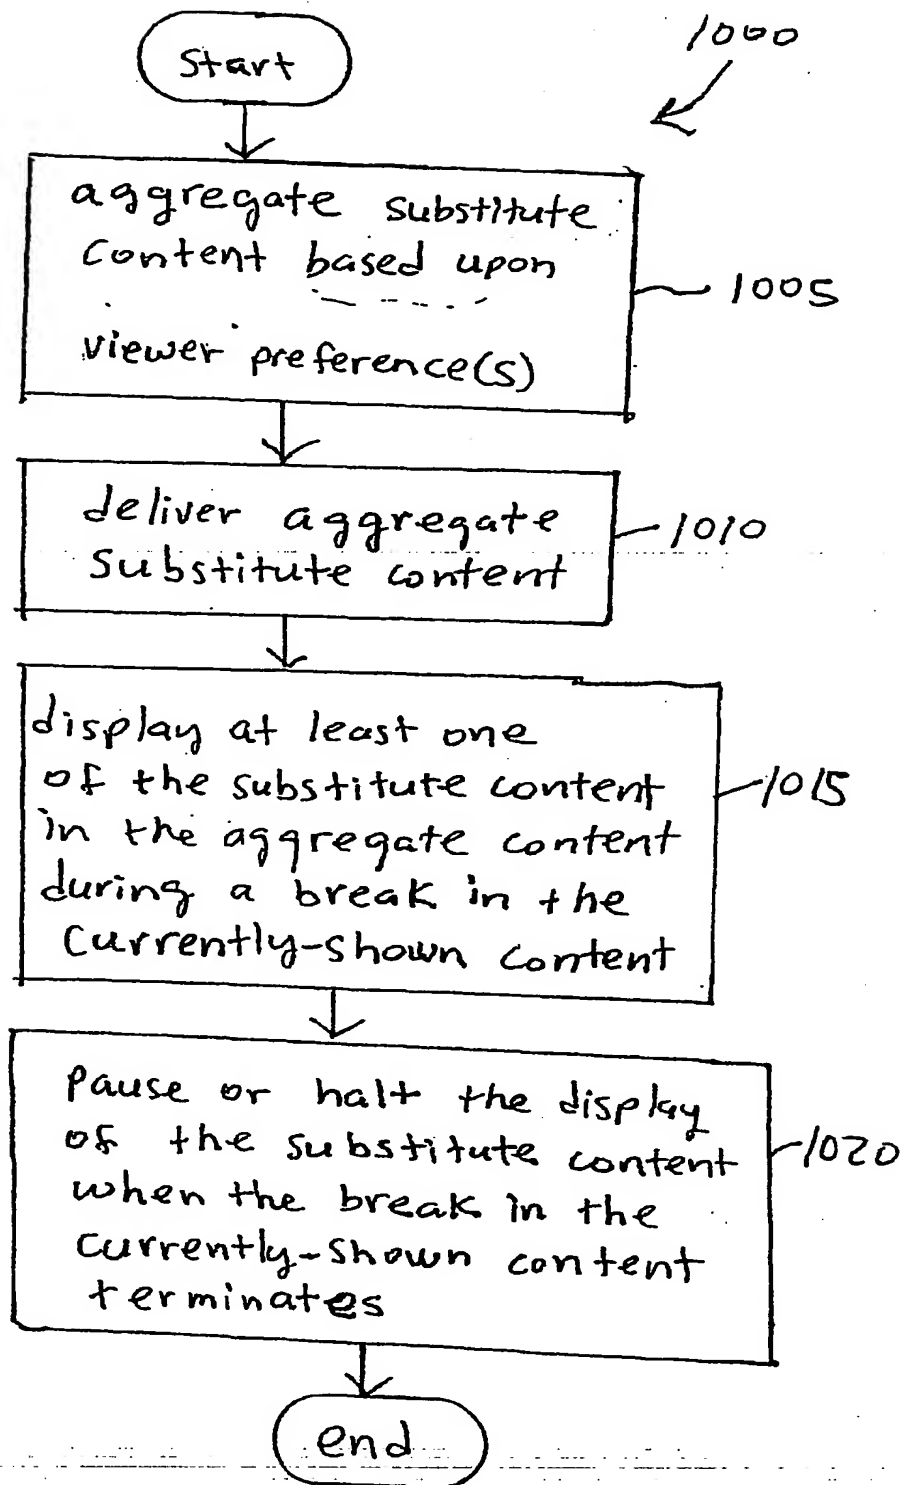 1000
Start
aggregate substitute
Content based upon
viewer preference(s)
1005
deliver aggregate
Substitute content
1010
display at least one
of the substitute content
in the aggregate content
during a break in the
Currently-shown content
1015
Pause or halt the display
of the substitute content
when the break in the
currently-shown content
terminates
1020
end